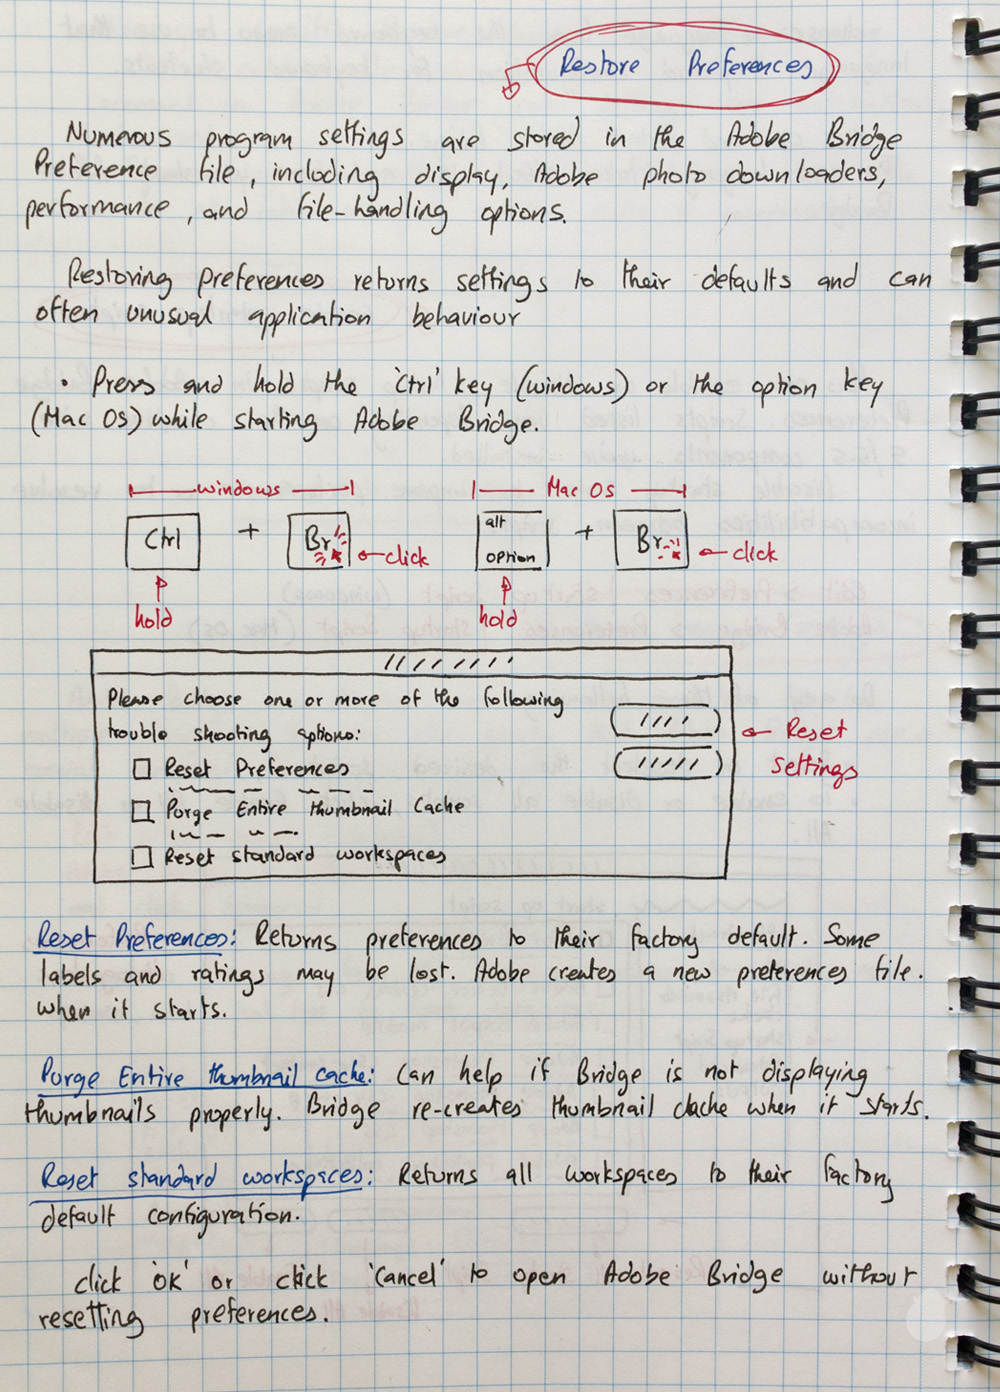 Restore Preferences
Numerous program settings are stored in the Adobe Bridge
Preference file, including display, Adobe photo downloaders,
performance, and file-handling options.
Restoring preferences returns settings to their defaults and can
often unusual application behaviour
• Press and hold the 'Ctrl' key (windows) or the option key
(Mac OS) while starting Adobe Bridge.
windows
Mac OS
Ctrl + Br click
alt option + Br click
hold
hold
Please choose one or more of the following
trouble shooting options:
Reset Preferences
Purge Entire thumbnail Cache
Reset standard workspaces
Reset
settings
Reset Preferences: Returns preferences to their factory default. Some
labels and ratings may be lost. Adobe creates a new preferences file.
when it starts.
Purge Entire thumbnail cache: Can help if Bridge is not displaying
thumbnails properly. Bridge re-creates thumbnail cache when it starts.
Reset standard workspaces: Returns all workspaces to their factory
default configuration.
click 'OK' or click 'Cancel' to open Adobe Bridge without
resetting preferences.